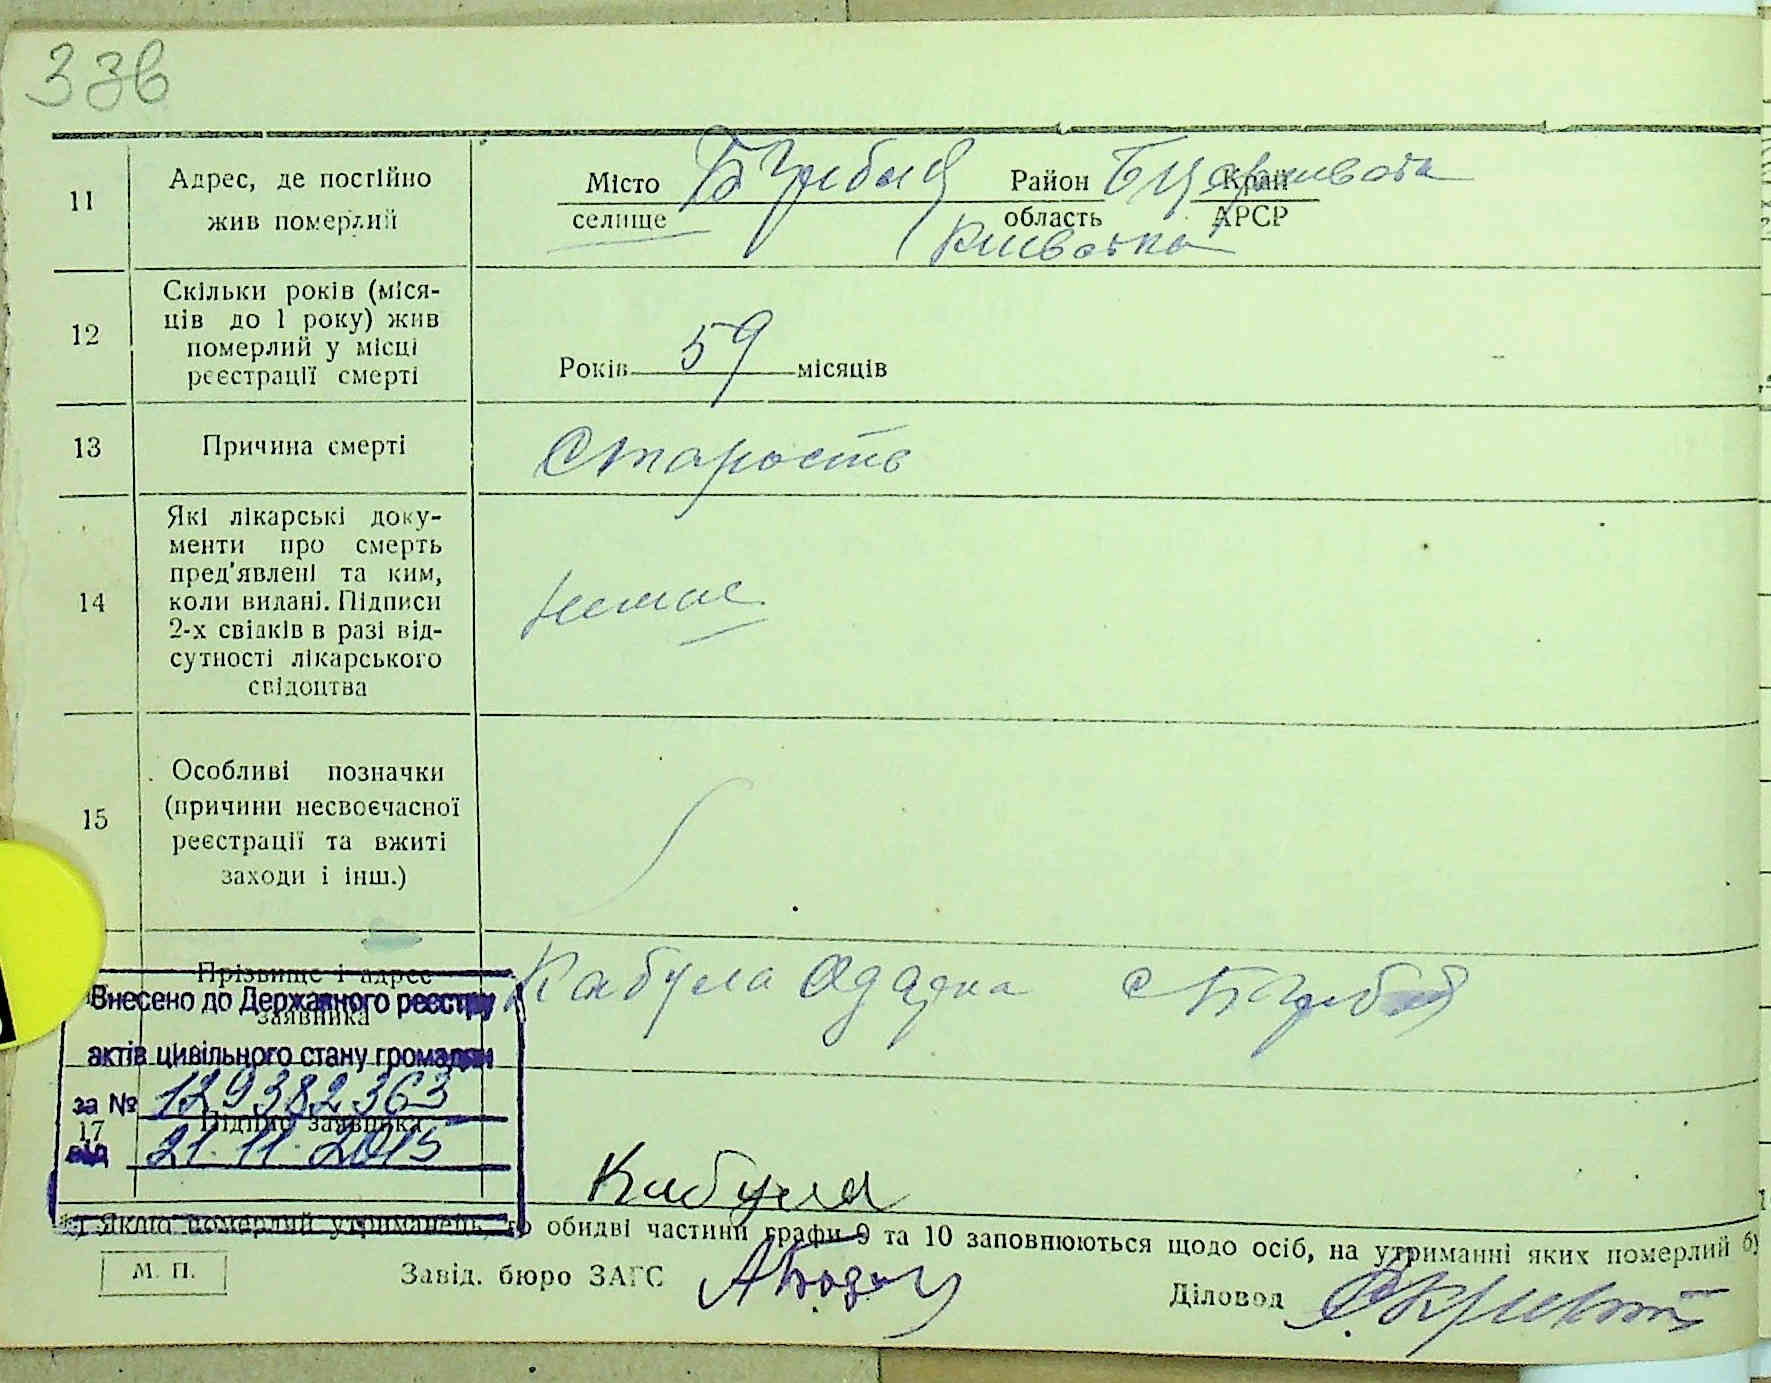 336
11
Адрес, де постійно
жив померлий
Місто
селище
Район
область
Край
АРСР
Київська
12
Скільки років (міся-
ців до 1 року) жив
померлий у місці
реєстрації смерті
Років 59 місяців
13
Причина смерті
Старость
14
Які лікарські доку-
менти про смерть
пред'явлені та ким,
коли видані. Підписи
2-х свідків в разі від-
сутності лікарського
свідоцтва
немає
15
Особливі позначки
(причини несвоєчасної
реєстрації та вжиті
заходи і інш.)
Прізвище і адрес
заявника
Кабула Одарка с
Внесено до Державного реєстру
актів цивільного стану громадян
за № 129382363
17
Підпис заявника
від 21.11.2015
Кабула
*) Якщо померлий утриманець, то обидві частини графи 9 та 10 заповнюються щодо осіб, на утриманні яких померлий бу
М. П.
Завід. бюро ЗАГС
Діловод